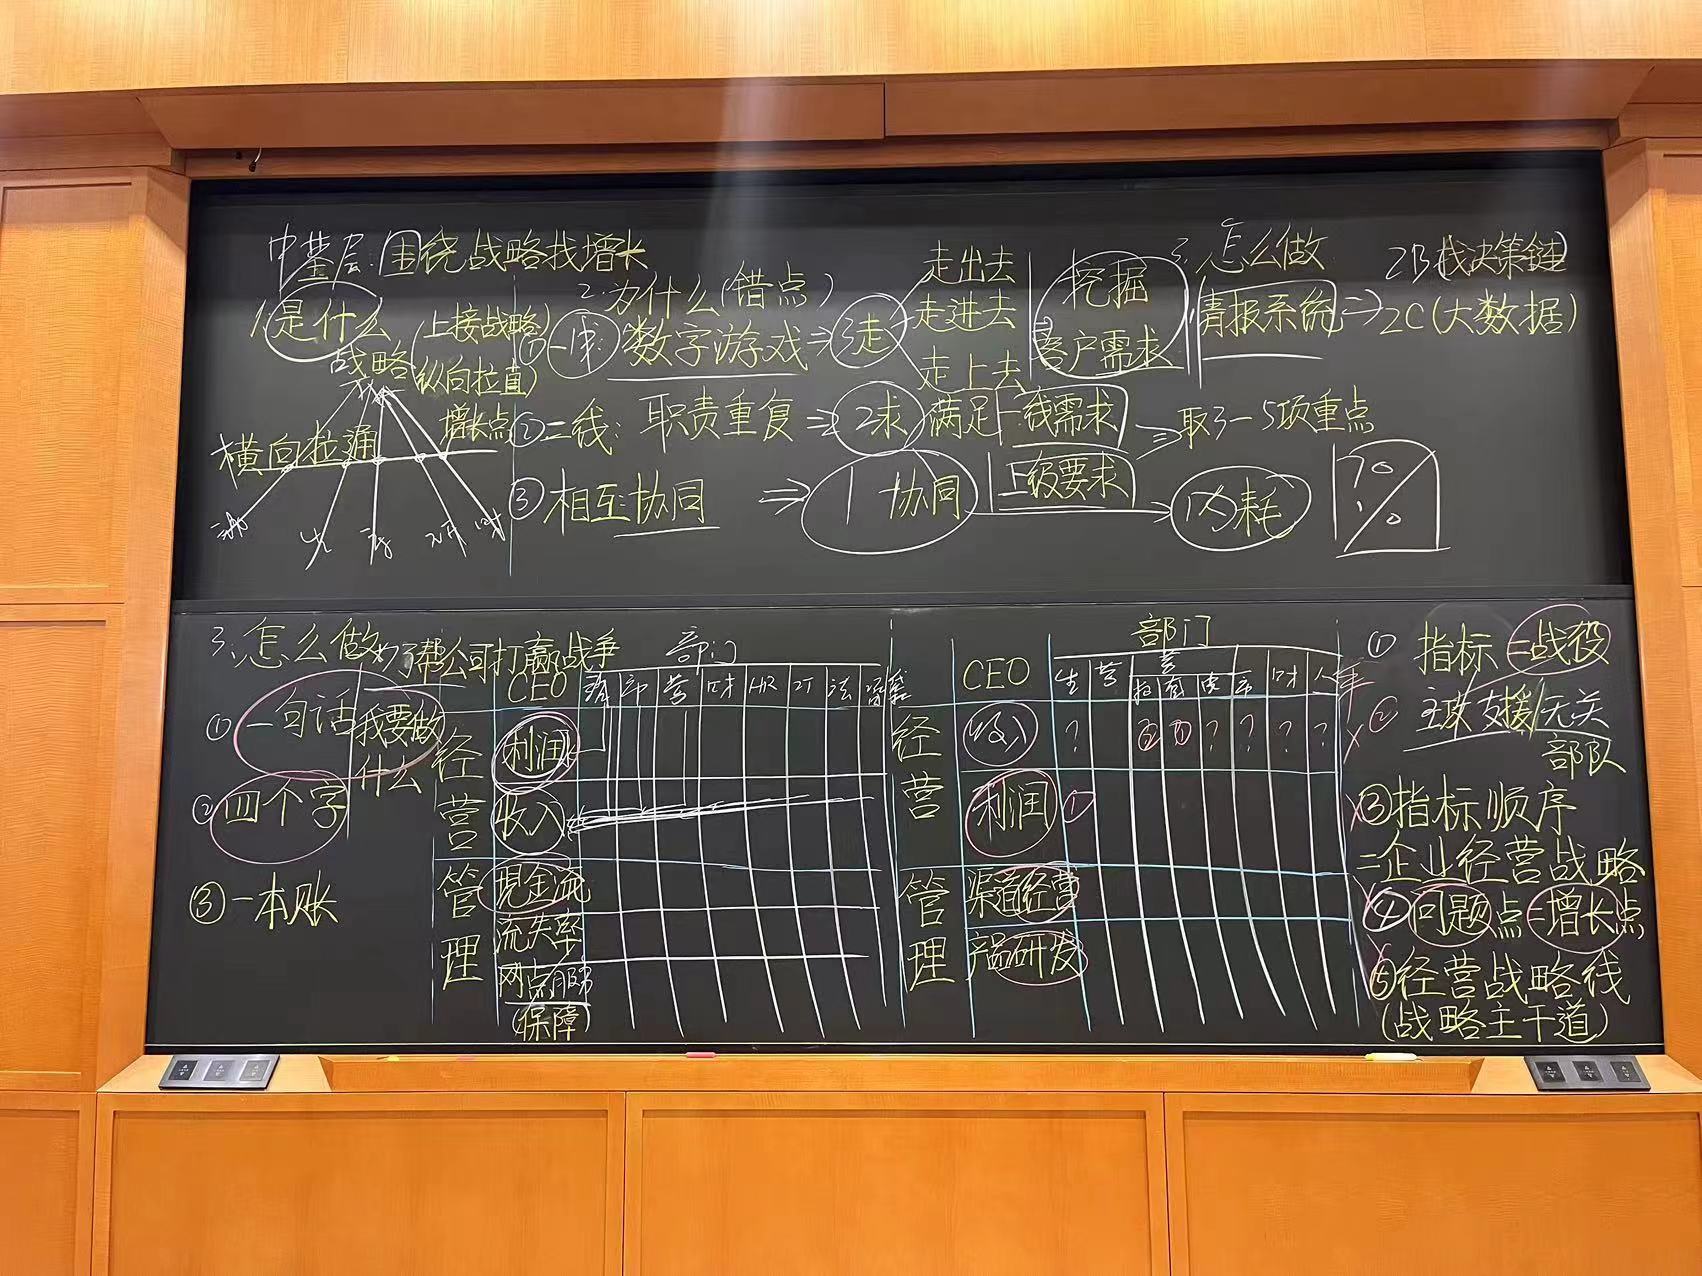 中基层:围绕战略找增长
1.是什么
(上接战略)
战略
纵向拉直)
横向拉通
增长点
2.为什么(错点)
①一line:数字游戏⇒3走
走出去
走进去
走上去
挖掘
客户需求
②二线:职责重复⇒2求
满足一线需求
上级要求
⇒取3-5项重点
③相互协同⇒1协同
内耗
70%
3.怎么做
情报系统⇒
2B找决策链
2C(大数据)
3.怎么做
为了帮公司打赢战争
①一句话
我要做
什么
②四个字
③一本账
部门
CEO
市 营 财 HR IT 法
经营
利润
收入
管理
现金流
流失率
网点服务
(保障)
部门
CEO
生 营 皮 市 财 人
经营
收入
? ② ⑦ ? ? ? ?
利润 ①
管理
渠道经营
产品研发
① 指标=战役
② 主攻/支援/无关
部队
③指标顺序
=企业经营战略
④问题点=增长点
⑤经营战略线
(战略主干道)